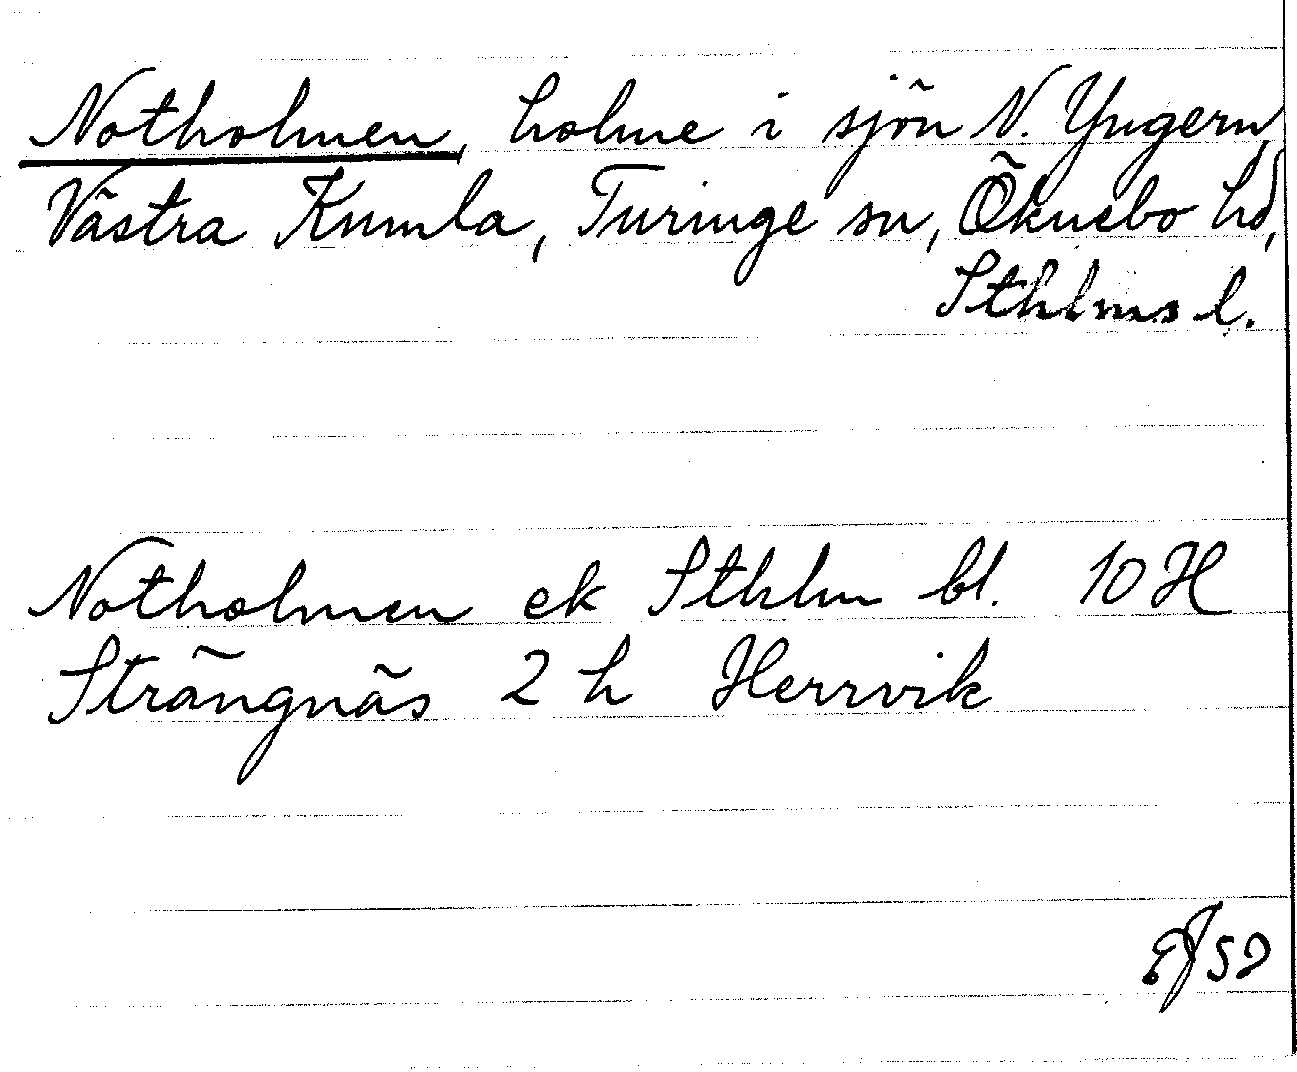 Notholmen, holme i sjön N. Yngern,
Västra Kumla, Turinge sn, Öknebo hd,
Sthlms l.
Notholmen ek Sthlm bl. 10 H
Strängnäs 2 h Herrvik